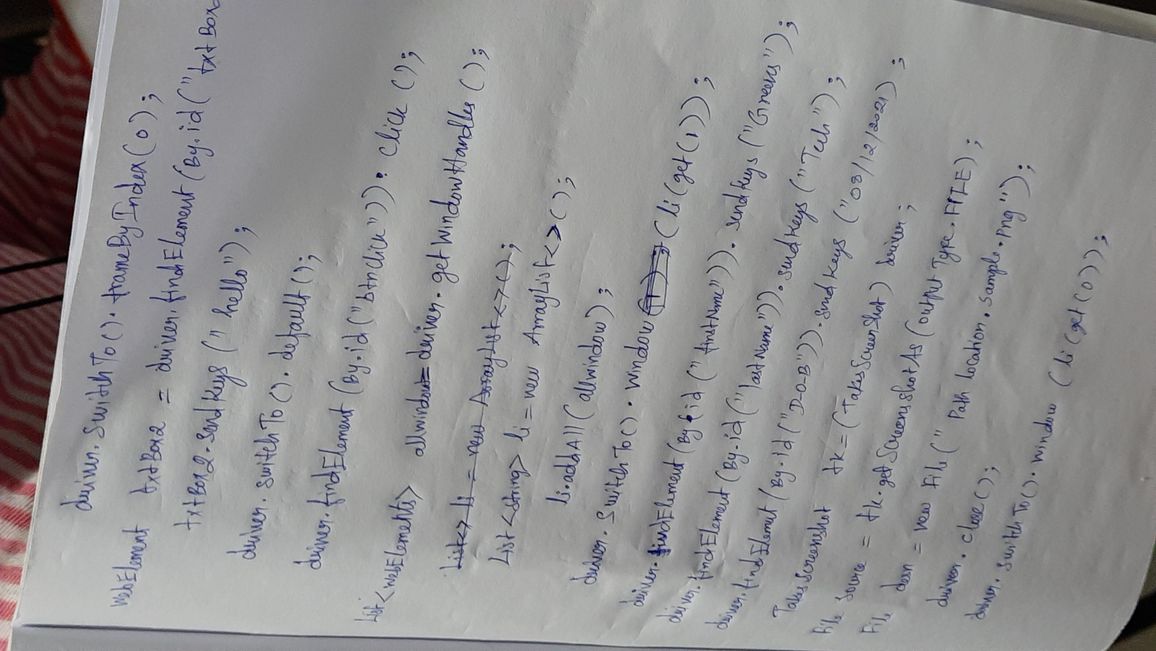 driver.switchTo().frameByIndex(0);
WebElement txtBox2 = driver.findElement(By.id("txtBox
txtBox2.sendkeys("hello");
driver.switchTo().default();
driver.findElement(By.id("btnclick")).click();
List<WebElements> allwindow = driver.getWindowHandles();
List<> li = new ArrayList<>();
List<String> li = new ArrayList<>();
li.addAll(allwindow);
driver.switchTo().window(li(get(1));
driver.findElement(By.id("firstName"))).sendkeys("Greens");
driver.findElement(By.id("lastName")).sendkeys("Tech");
driver.findElemnt(By.id("D-O-B")).sendkeys("03/12/2021);
TakesScreenshot tk=(TakesScreenShot) driver;
File Source = tk.getScreenshotAs(outputType.FILE);
File desn = new File("Path location.sample.png");
driver.close();
driver.switchTo().window(li(get(0));